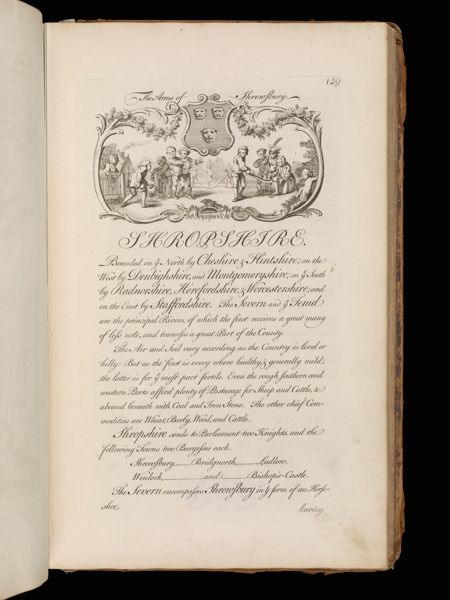 129
The Arms of Shrewsbury
SHROPSHIRE.
Bounded on ỹ North by Cheshire & Flintshire; on the
West by Denbighshire, and Montgomeryshire; on ỹ South
by Radnorshire, Herefordshire, & Worcestershire; and
on the East by Staffordshire. The Severn and ỹ Temd
are the principal Rivers, of which the first receives a great many
of less note, and traverses a great Part of the County.
The Air and Soil vary according as the Country is level or
hilly: But as the first is every where healthy, & generally mild;
the latter is for ỹ most part fertile. Even the rough southern and
western Parts afford plenty of Pasturage for Sheep and Cattle, &
abound beneath with Coal and Iron Stone. The other chief Com-
modities are Wheat, Barly, Wood, and Cattle.
Shropshire sends to Parliament two Knights, and the
following Towns two Burgesses each.
Shrewsbury,........Bridgnorth,............Ludlow,
Wenlock,....................and..............Bishop's-Castle.
The Severn encompasses Shrewsbury in ỹ form of an Horse-
shoe, leaving